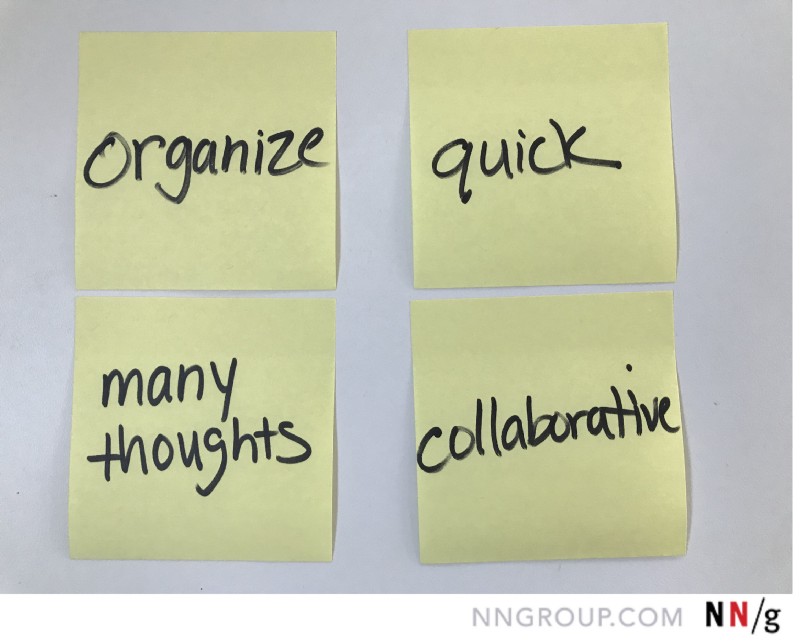 organize
quick
many
thoughts
collaborative
NNGROUP.COM NN/g